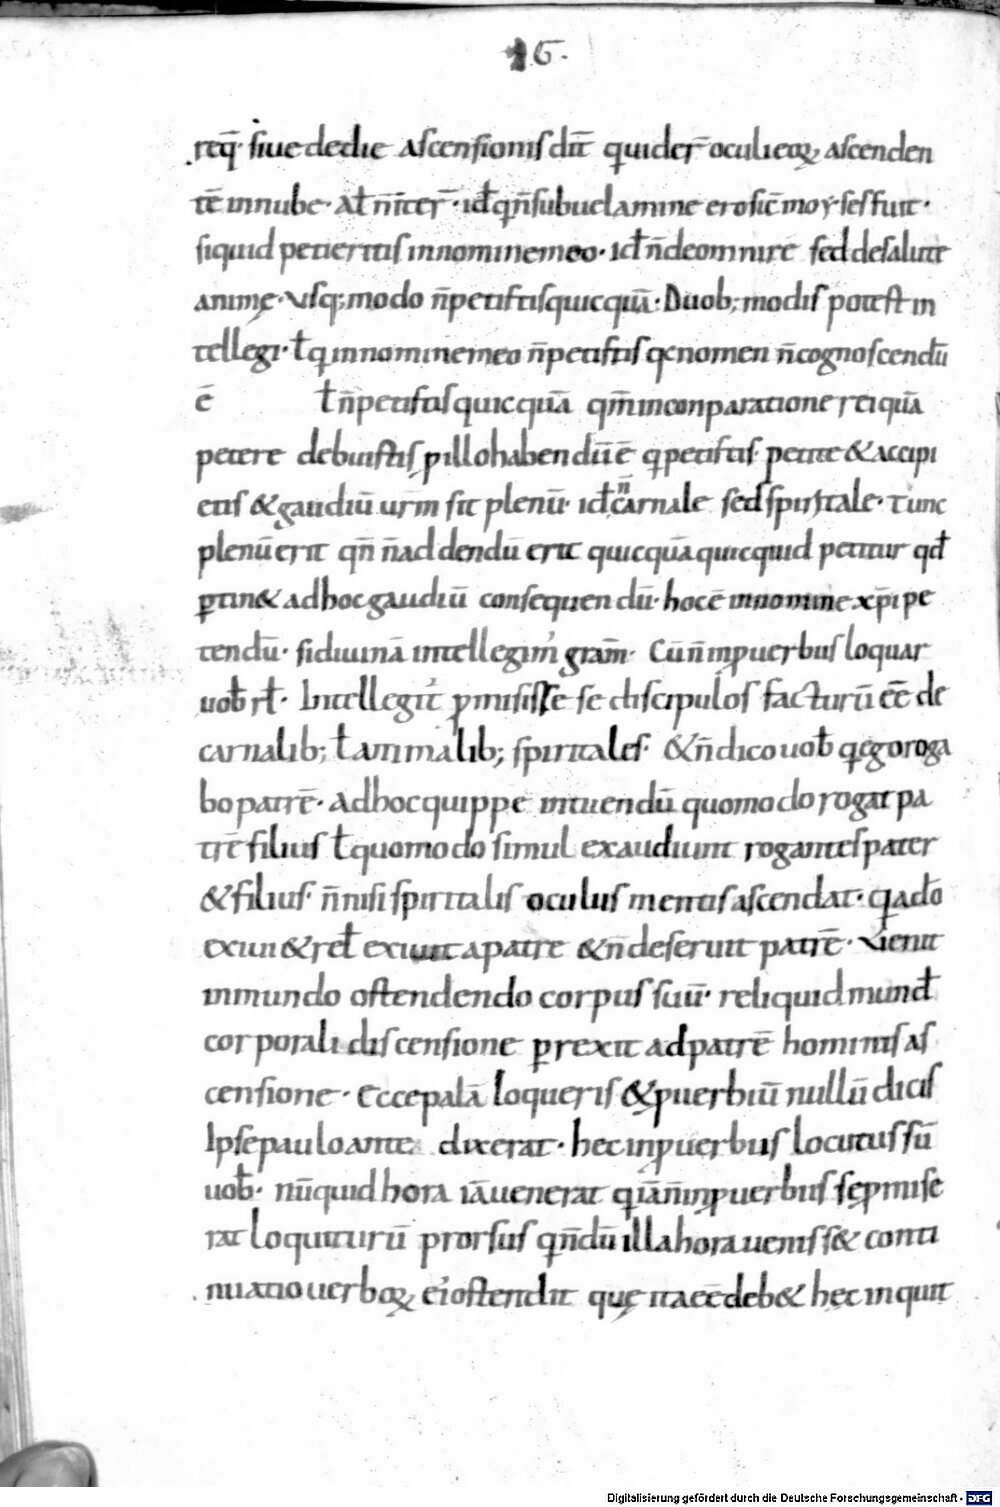 16.
req̄· siue dedie ascensionis dic̄t quider̄ oculi eoꝝ ascenden
tē innube· At n̄ iter̄· id qn̄ subuelamine erosic̄ moy·ses fuit·
siquid petieritis innominemeo· id n̄deomnire sed desalute
animę· Vsq; modo n̄petistisquicquā· Duob; modis potest in
tellegi· ƚ q innominemeo n̄petistis qc nomen n̄cognoscendū
ē ƚ n̄petistis quicquā qm̄ inconparatione rei quā
petere debuistis ꝓillohabendū ē q petistis· petite & accipi
etis & gaudiū urm̄ sit plenū· id n̄ carnale sed spiritale· Tunc
plenū erit qn̄ n̄ad dendū erit quicquā quicquid petitur qđ
ꝑtin& adhoc gaudiū consequendū· hoc ē innomine xp̄i pe
tendū· sidiuinā intellegim' gram̄· Cū n̄ inꝓuerbiis loquar
uob̄ rƚ· Intellegit̕ ꝓmisisse se discipulos facturū eē de
carnalib; ƚ animalib; spiritales· & n̄ dico uob̄ q ego roga
bo patrē· Adhoc quippe intuendū quomodo rogat pa
trē filius ƚ quomodo simul exaudiunt rogantes pater
& filius· n̄nisi spiritalis oculus mentis ascendat· q ado
exiui & reƚ exiuit apatre & n̄ deseruit patrē· Venit
inmundo ostendendo corpus suū· reliquid mund̄
corporali discensione ꝑrexit ad patrē hominis as
censione· Ecce palā loqueris & ꝓuerbiū nullū dicis
Ipse paulo ante dixerat· hec inꝓuerbiis locutus sū
uob̄· nūquid hora iā uenerat q iā n̄ inꝓuerbiis sę ꝓmise
rat loquiturū prorsus qn̄dū illa hora uenisset & conti
nuatio uerboꝝ ei' ostendit quę ita eē deb& hec inquit
Digitalisierung gefördert durch die Deutsche Forschungsgemeinschaft - DFG